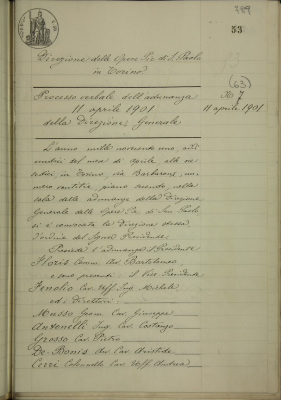 789
53
Direzione delle Opere Pie di S. Paolo
in Torino
(63)
Processo verbale dell'adunanza
11 aprile 1901
della Direzione Generale
No 7
11 aprile 1901
L'anno mille novecento uno, addì
undici del mese di aprile alle ore
in Torino, via Barbaroux, nu-
mero ventitre piano secondo, nella
sala delle adunanze della Direzione
Generale delle Opere Pie di San Paolo
si è convocata la Direzione stessa
d'ordine del Signor Presidente.
Presiede l'adunanza il Presidente
Floris Comm. Av. Bartolomeo
e sono presenti: il Vice-Presidente
Fenolio Cav. Uff. Ing. Michele
ed i Direttori:
Musso Geom. Cav. Giuseppe
Antonelli Ing. Cav. Costanzo
Grosso Cav. Pietro
De-Bonis Av. Cav. Aristide
Cerri Colonnello Cav. Uff. Andrea